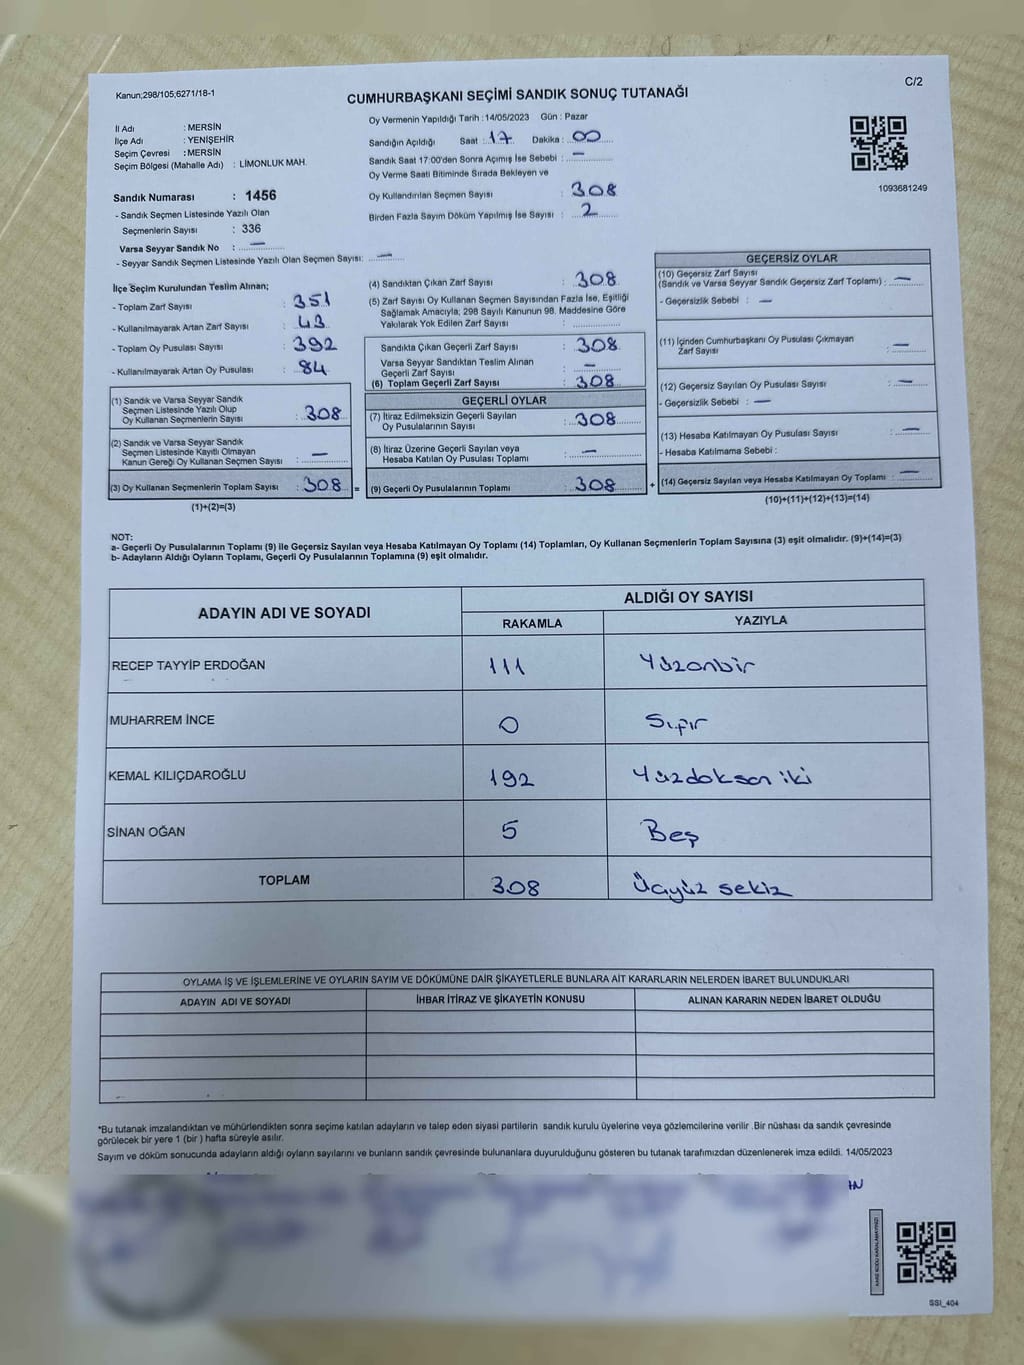 Kanun;298/105;6271/18-1
C/2
CUMHURBAŞKANI SEÇİMİ SANDIK SONUÇ TUTANAĞI
İl Adı : MERSİN
İlçe Adı : YENİŞEHİR
Seçim Çevresi : MERSİN
Seçim Bölgesi (Mahalle Adı) : LİMONLUK MAH.
Sandık Numarası : 1456
- Sandık Seçmen Listesinde Yazılı Olan
Seçmenlerin Sayısı : 336
Varsa Seyyar Sandık No : —
- Seyyar Sandık Seçmen Listesinde Yazılı Olan Seçmen Sayısı: —
Oy Vermenin Yapıldığı Tarih : 14/05/2023 Gün : Pazar
Sandığın Açıldığı Saat : 17 Dakika : 00
Sandık Saat 17:00'den Sonra Açımış İse Sebebi : —
Oy Verme Saati Bitiminde Sırada Bekleyen ve
Oy Kullandırılan Seçmen Sayısı : 308
Birden Fazla Sayım Döküm Yapılmış İse Sayısı : 2
1093681249
İlçe Seçim Kurulundan Teslim Alınan;
- Toplam Zarf Sayısı : 351
- Kullanılmayarak Artan Zarf Sayısı : 43
- Toplam Oy Pusulası Sayısı : 392
- Kullanılmayarak Artan Oy Pusulası : 84
(1) Sandık ve Varsa Seyyar Sandık
Seçmen Listesinde Yazılı Olup
Oy Kullanan Seçmenlerin Sayısı : 308
(2) Sandık ve Varsa Seyyar Sandık
Seçmen Listesinde Kayıtlı Olmayan
Kanun Gereği Oy Kullanan Seçmen Sayısı : —
(3) Oy Kullanan Seçmenlerin Toplam Sayısı : 308 =
(1)+(2)=(3)
(4) Sandıktan Çıkan Zarf Sayısı : 308
(5) Zarf Sayısı Oy Kullanan Seçmen Sayısından Fazla İse, Eşitliği
Sağlamak Amacıyla; 298 Sayılı Kanunun 98. Maddesine Göre
Yakılarak Yok Edilen Zarf Sayısı :
Sandıkta Çıkan Geçerli Zarf Sayısı : 308
Varsa Seyyar Sandıktan Teslim Alınan
Geçerli Zarf Sayısı : —
(6) Toplam Geçerli Zarf Sayısı : 308
GEÇERLİ OYLAR
(7) İtiraz Edilmeksizin Geçerli Sayılan
Oy Pusulalarının Sayısı : 308
(8) İtiraz Üzerine Geçerli Sayılan veya
Hesaba Katılan Oy Pusulası Toplamı : —
(9) Geçerli Oy Pusulalarının Toplamı : 308 +
GEÇERSİZ OYLAR
(10) Geçersiz Zarf Sayısı
(Sandık ve Varsa Seyyar Sandık Geçersiz Zarf Toplamı) : —
- Geçersizlik Sebebi : —
(11) İçinden Cumhurbaşkanı Oy Pusulası Çıkmayan
Zarf Sayısı : —
(12) Geçersiz Sayılan Oy Pusulası Sayısı : —
- Geçersizlik Sebebi : —
(13) Hesaba Katılmayan Oy Pusulası Sayısı : —
- Hesaba Katılmama Sebebi :
(14) Geçersiz Sayılan veya Hesaba Katılmayan Oy Toplamı : —
(10)+(11)+(12)+(13)=(14)
NOT:
a- Geçerli Oy Pusulalarının Toplamı (9) ile Geçersiz Sayılan veya Hesaba Katılmayan Oy Toplamı (14) Toplamları, Oy Kullanan Seçmenlerin Toplam Sayısına (3) eşit olmalıdır. (9)+(14)=(3)
b- Adayların Aldığı Oyların Toplamı, Geçerli Oy Pusulalarının Toplamına (9) eşit olmalıdır.
ADAYIN ADI VE SOYADI ALDIĞI OY SAYISI
RAKAMLA YAZIYLA
RECEP TAYYİP ERDOĞAN 111 Yüzonbir
MUHARREM İNCE 0 Sıfır
KEMAL KILIÇDAROĞLU 192 Yüzdoksan iki
SİNAN OĞAN 5 Beş
TOPLAM 308 Üçyüz sekiz
OYLAMA İŞ VE İŞLEMLERİNE VE OYLARIN SAYIM VE DÖKÜMÜNE DAİR ŞİKAYETLERLE BUNLARA AİT KARARLARIN NELERDEN İBARET BULUNDUKLARI
ADAYIN ADI VE SOYADI İHBAR İTİRAZ VE ŞİKAYETİN KONUSU ALINAN KARARIN NEDEN İBARET OLDUĞU
*Bu tutanak imzalandıktan ve mühürlendikten sonra seçime katılan adayların ve talep eden siyasi partilerin sandık kurulu üyelerine veya gözlemcilerine verilir .Bir nüshası da sandık çevresinde
görülecek bir yere 1 (bir ) hafta süreyle asılır.
Sayım ve döküm sonucunda adayların aldığı oyların sayılarını ve bunların sandık çevresinde bulunanlara duyurulduğunu gösteren bu tutanak tarafımızdan düzenlenerek imza edildi. 14/05/2023
SSI_404